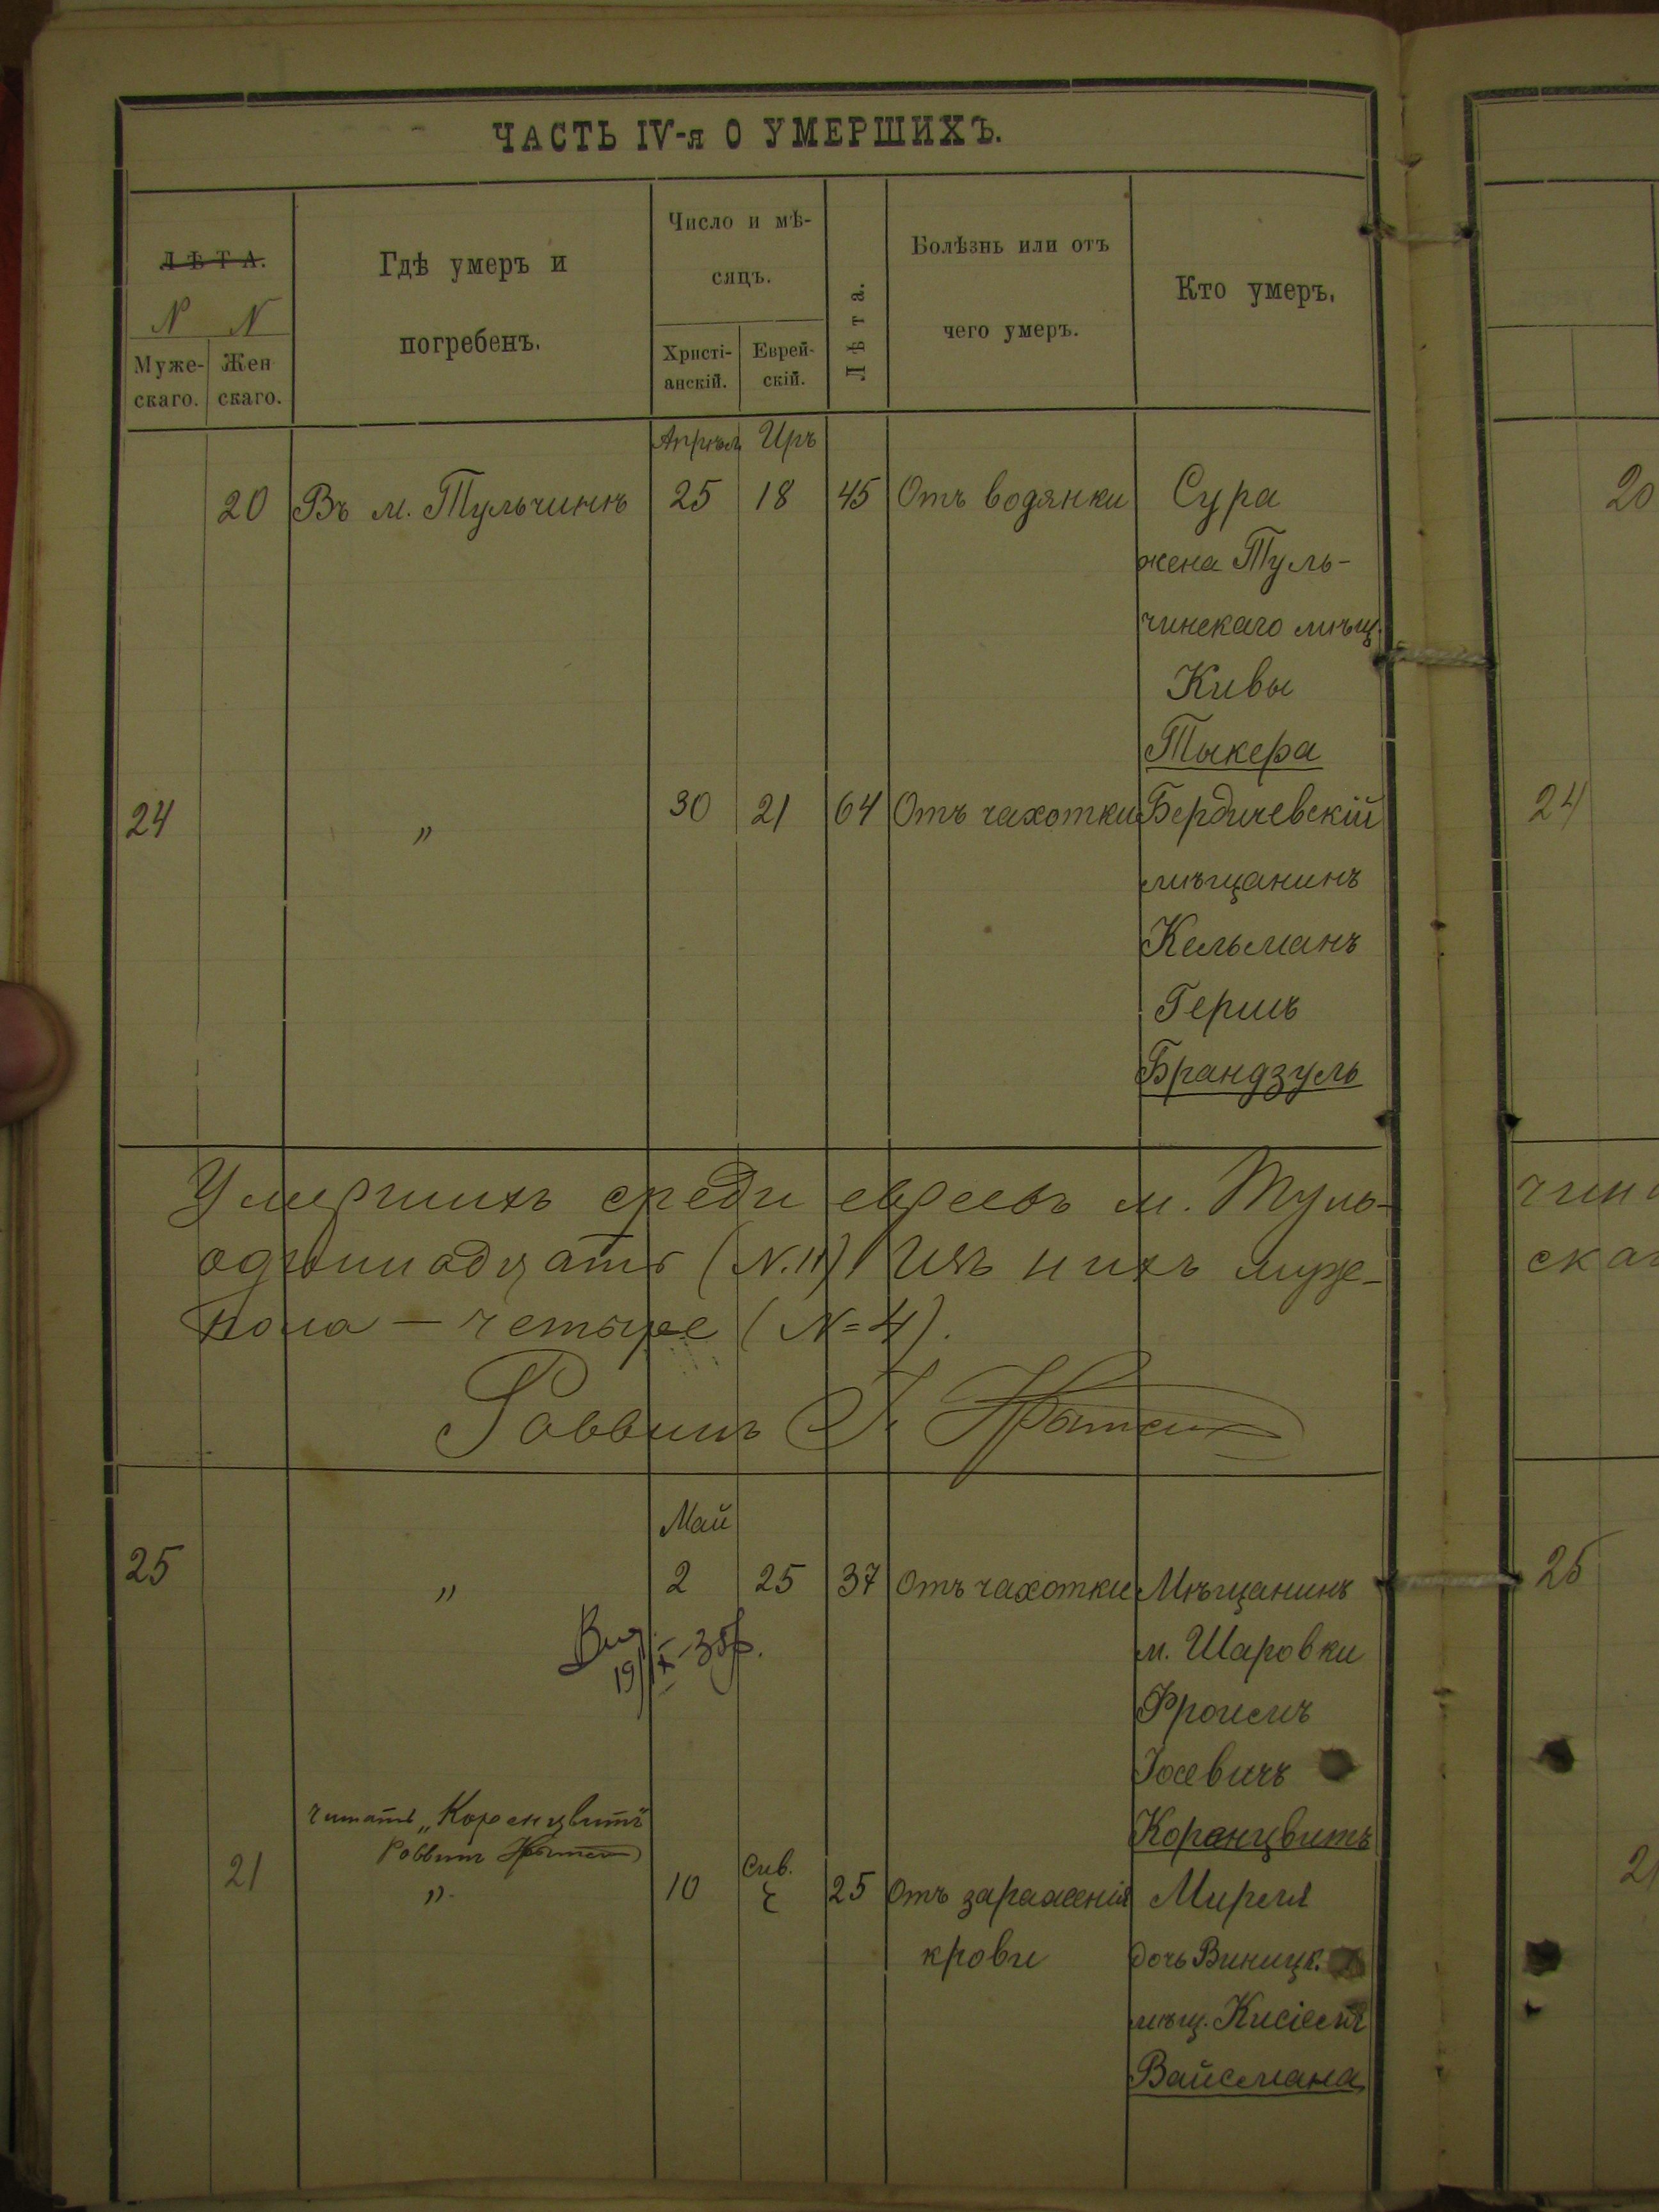 ЧАСТЬ IV-я О УМЕРШИХЪ.
ЛѢТА.
N N
Муже-
скаго.
Жен
скаго.
Гдѣ умеръ и
погребенъ.
Число и мѣ-
сяцъ.
Христі-
анскій.
Еврей-
скій.
Лѣта.
Болѣзнь или отъ
чего умеръ.
Кто умеръ.
Апрѣль Иръ
20 Въ м. Тульчинѣ 25 18 45 Отъ водянки Сура
жена Туль-
чинскаго мѣщ.
Кивы
Тыкера
24 " 30 21 64 Отъ чахотки Бердичевскій
мѣщанинъ
Кельманъ
Гершъ
Брандзуль
Умершихъ среди евреевъ м. Туль-
одиннадцать (N.11) Изъ нихъ муже-
пола — четыре (N=4).
Раввинъ
Май
25 " 2 25 37 Отъ чахотки Мѣщанинъ
м. Шаровки
Фроимъ
Іосевичъ
Коранцвитъ
19/IX-35р.
читать „Коренцвитъ"
Раввинъ
21 " 10 Сив. 25 Отъ зараженія Мирля
крови дочь Виницк.
мѣщ. Кисіеля
Вайсмана
20
24
чин
ска
25
21